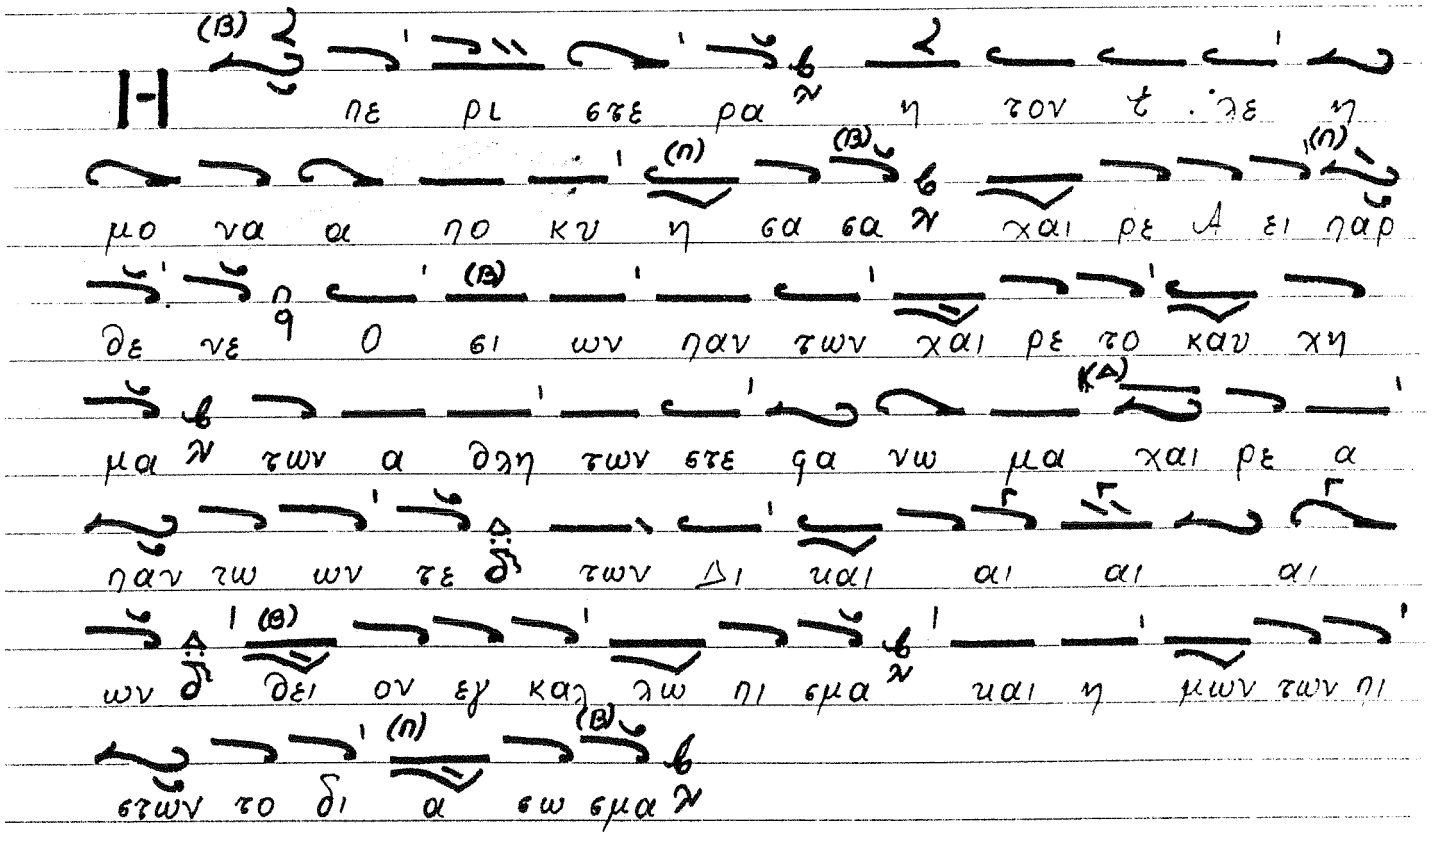 Η πε ρι στε ρα η τον ε λε η
μο να α πο κυ η σα σα χαι ρε Α ει παρ
θε νε Ο σι ων παν των χαι ρε το καυ χη
μα των α θλη των στε φα νω μα χαι ρε α
παν τω ων τε των Δι και αι αι αι
ων θει ον εγ καλ λω πι σμα και η μων των πι
στων το δι α σω σμα